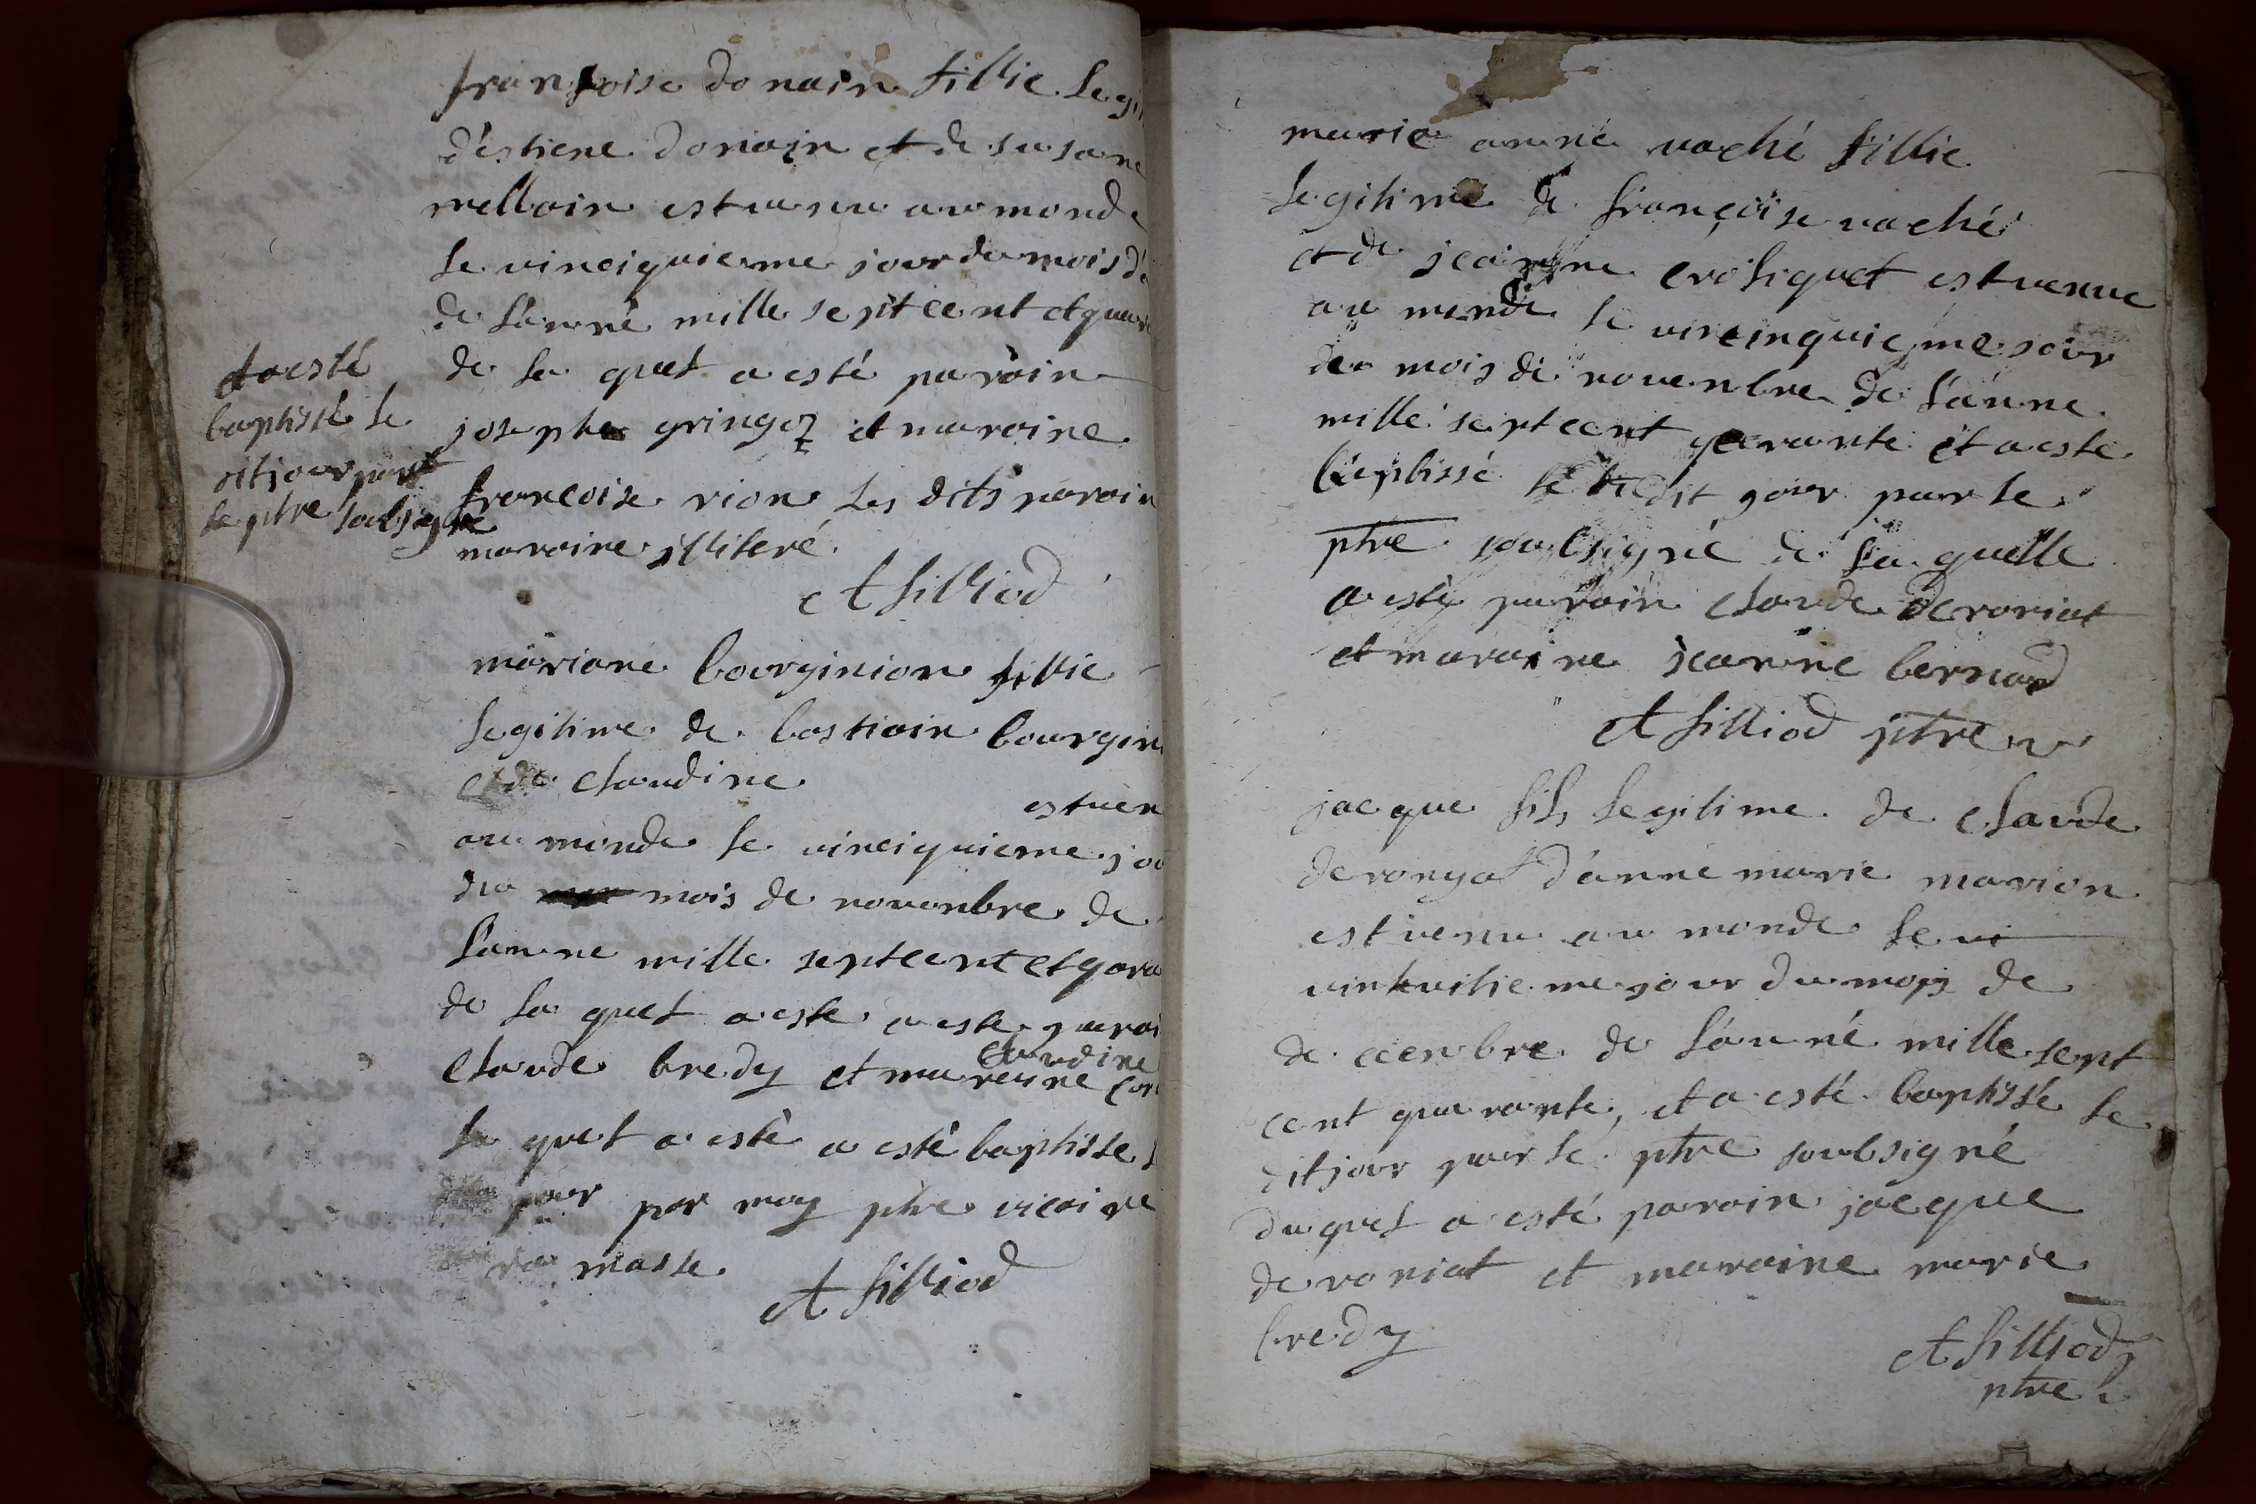 françoise donain fillie legi
d'estiene donain et de susane
melloin est venu au monde
le vinciquieme jour du mois d
de l'anné mille septcent et quar
de la quel a esté paroin
josephe gringoz et maroine
francoise rion les dits paroin
maroine jlliteré
A filliod
et a esté
baptissé le
dit jour par
le ptre soubsigne
moriane bourginion fillie
legitime de bastiain bourgin
et de claudine
est ven
au monde le vinciquieme jou
du mois de nouenbre de
l'anne mille septcent et gara
de la quel a este a este paroi
claude bredy et mareine claudine
la quel a estè a esté baptisse
jour par moy ptre vicaire
masse
A filliod
marie anné vaché fillie
legitime de françoise vaché
et de jeanne crotiquet est venue
au monde le vincinquieme jour
du mois de nouenbre de l'anne
mille septcent garante et a este
baptissé le dit jour par le
ptre soubsigné de la quelle
a estè paroin claude deroriat
et maroine jeanne bernard
A filliod ptre
jacque fils legitime de claude
deronyat d'anné marie marion
est venu au monde le vi
vinhuitieme jour du moys de
de ccenbre de l'anné mille sept
cent quarante, et a esté baptissé le
dit jour par le ptre soubsigné
du quel a esté paroin jacque
deroniat et maroine marie
bredy
A filliod
ptre